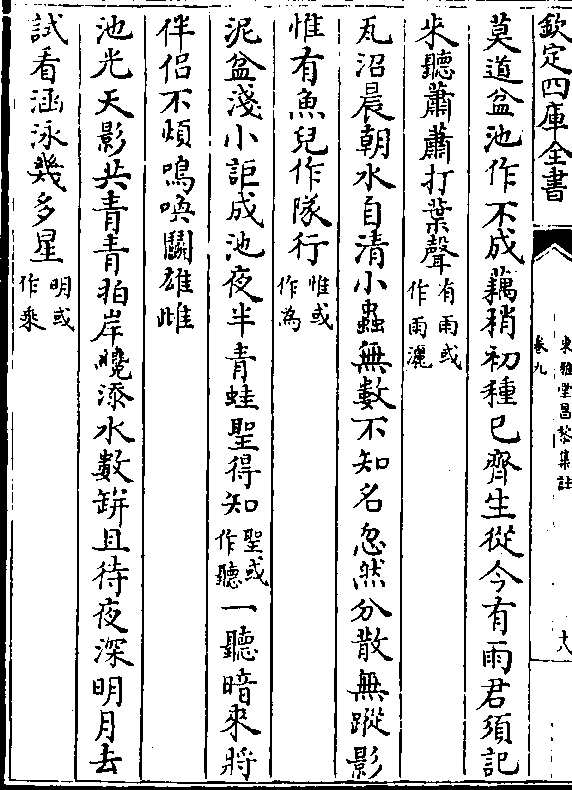 欽定四庫全書
東雅堂昌黎集註
卷九
十八
莫道盆池作不成藕稍初種已齊生從今有雨君須記
來聽蕭蕭打葉聲有雨或作雨灑
瓦沼晨朝水自清小蟲無數不知名忽然分散無蹤影
惟有魚兒作隊行惟或作為
泥盆淺小詎成池夜半青蛙聖得知聖或作聽一聽暗來將
伴侣不煩鳴喚鬭雄雌
池光天影共青青拍岸纔添水數缾且待夜深明月去
試看涵泳幾多星明或作乘